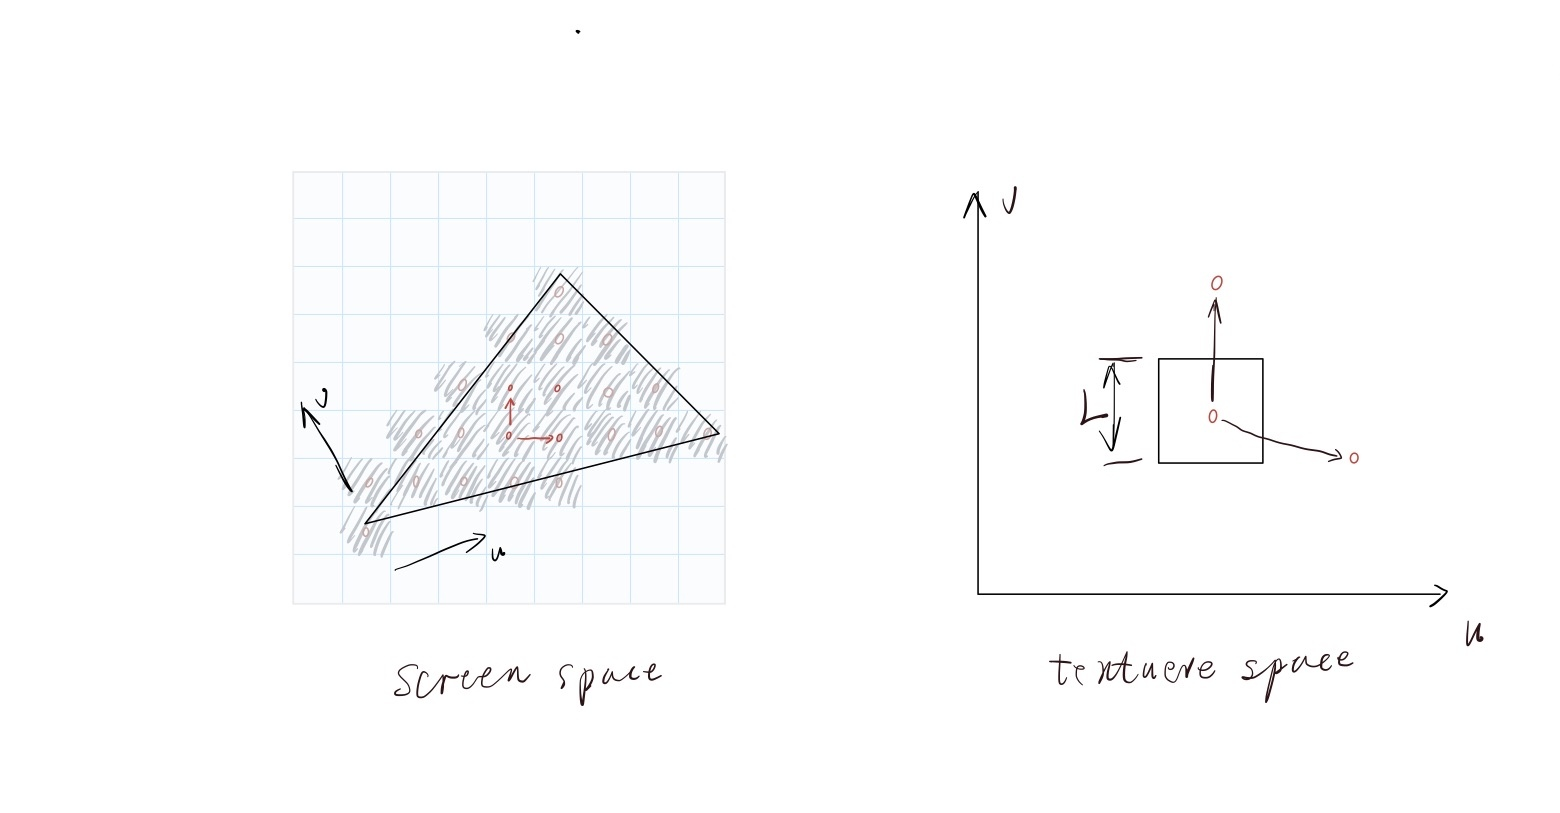 v
u
screen space
v
L
u
textuere space